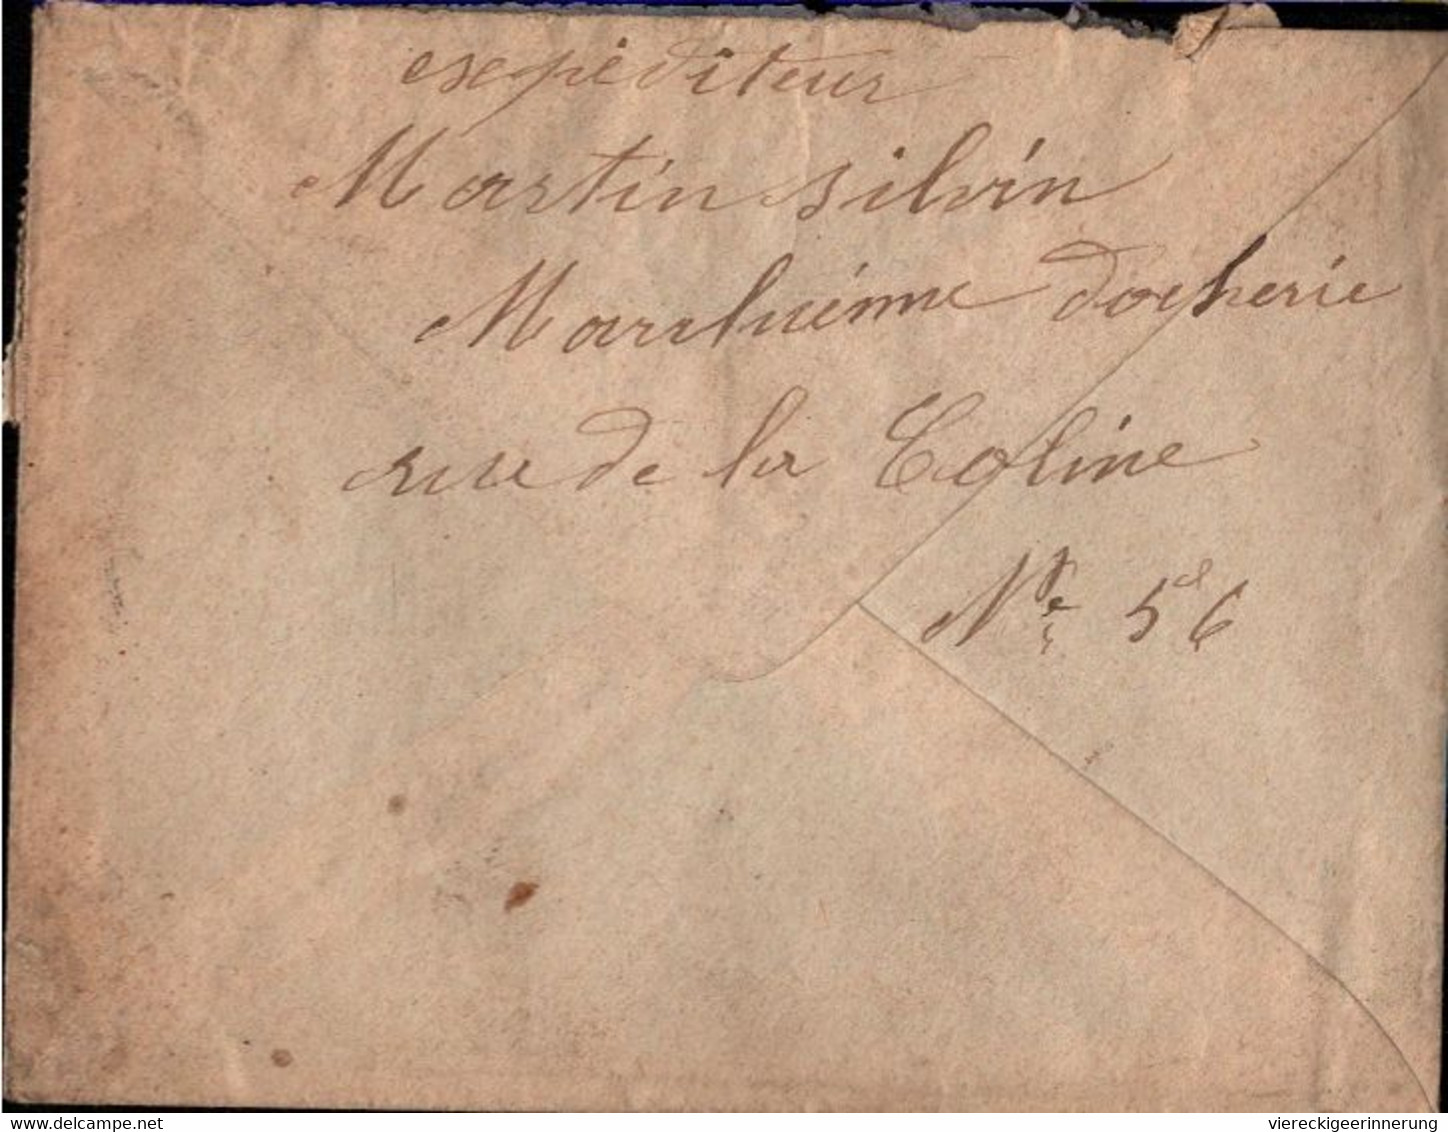 expéditeur
Martin silvin
Marchienne docherie
rue de la Coline
No 56
www.delcampe.net
viereckigeerinnerung